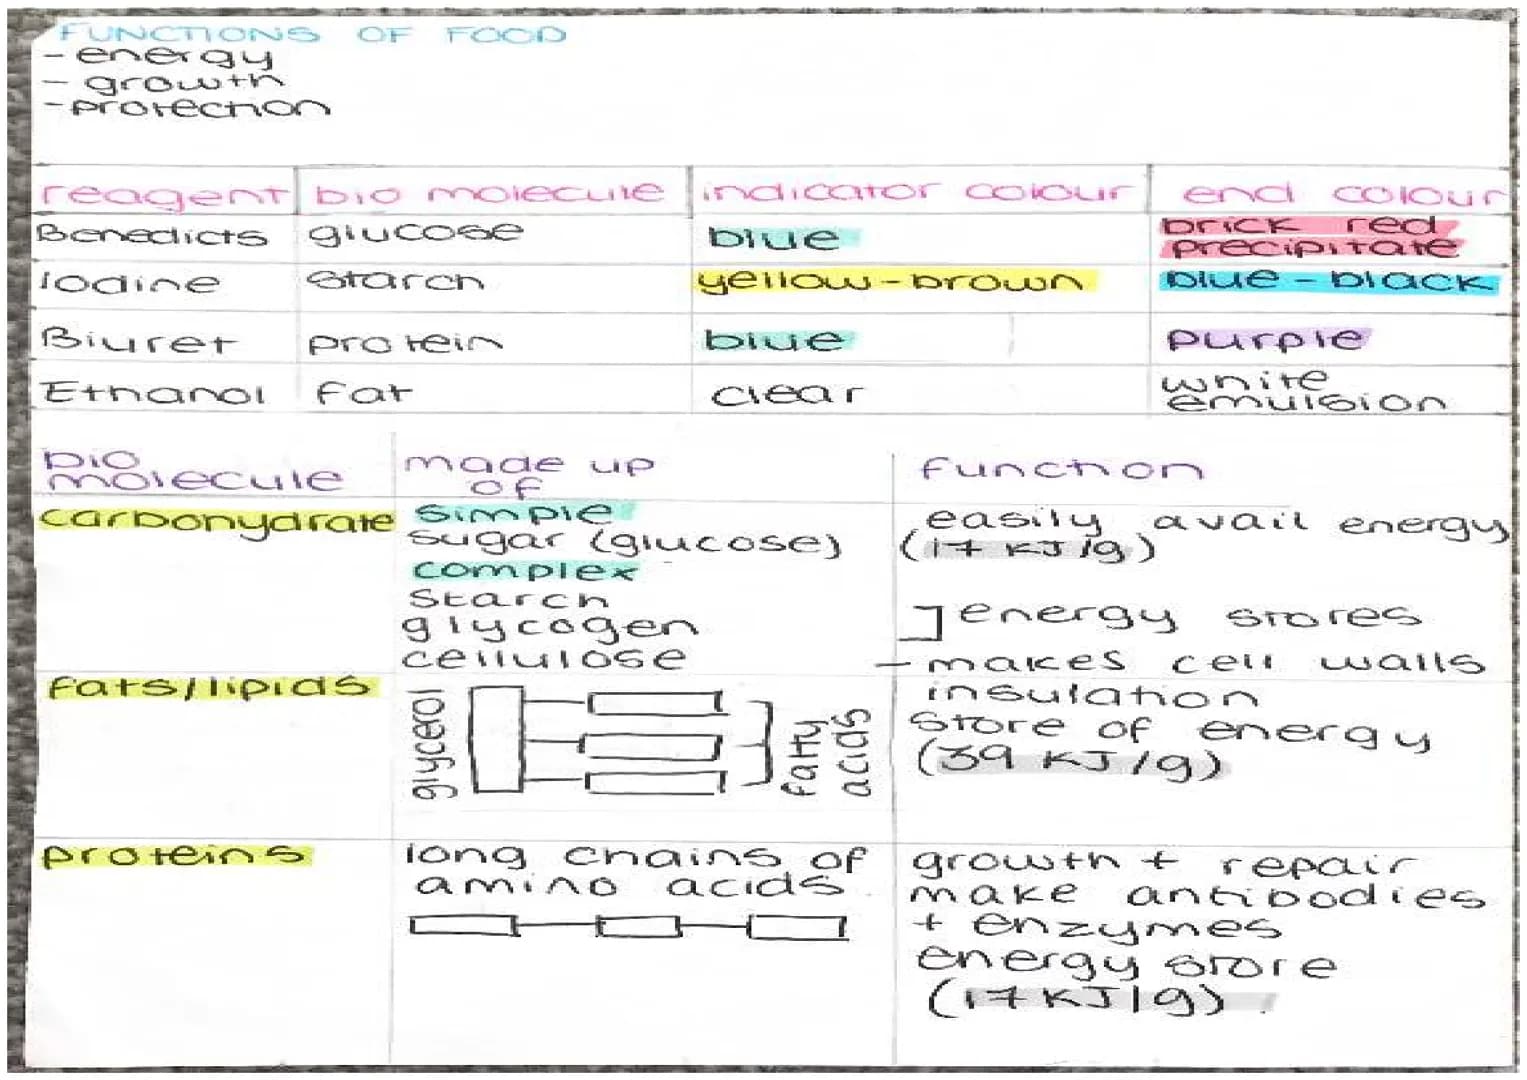 FUNCTIONS OF FOOD
- energy
- growth
- protection
reagent bio molecule indicator colour end colour
Benedicts glucose blue brick red
precipitate
Iodine starch yellow-brown blue-black
Biuret protein blue purple
Ethanol fat clear white
emulsion
bio
molecule
made up
of
function
carbohydrate
simple
sugar (glucose)
complex
starch
glycogen
cellulose
easily avail energy
(17 KJ/g)
] energy stores
- makes cell walls
fats/lipids
glycerol
fatty
acids
insulation
store of energy
(39 KJ/g)
proteins
long chains of
amino acids
growth + repair
make antibodies
+ enzymes
energy store
(17KJ/g)